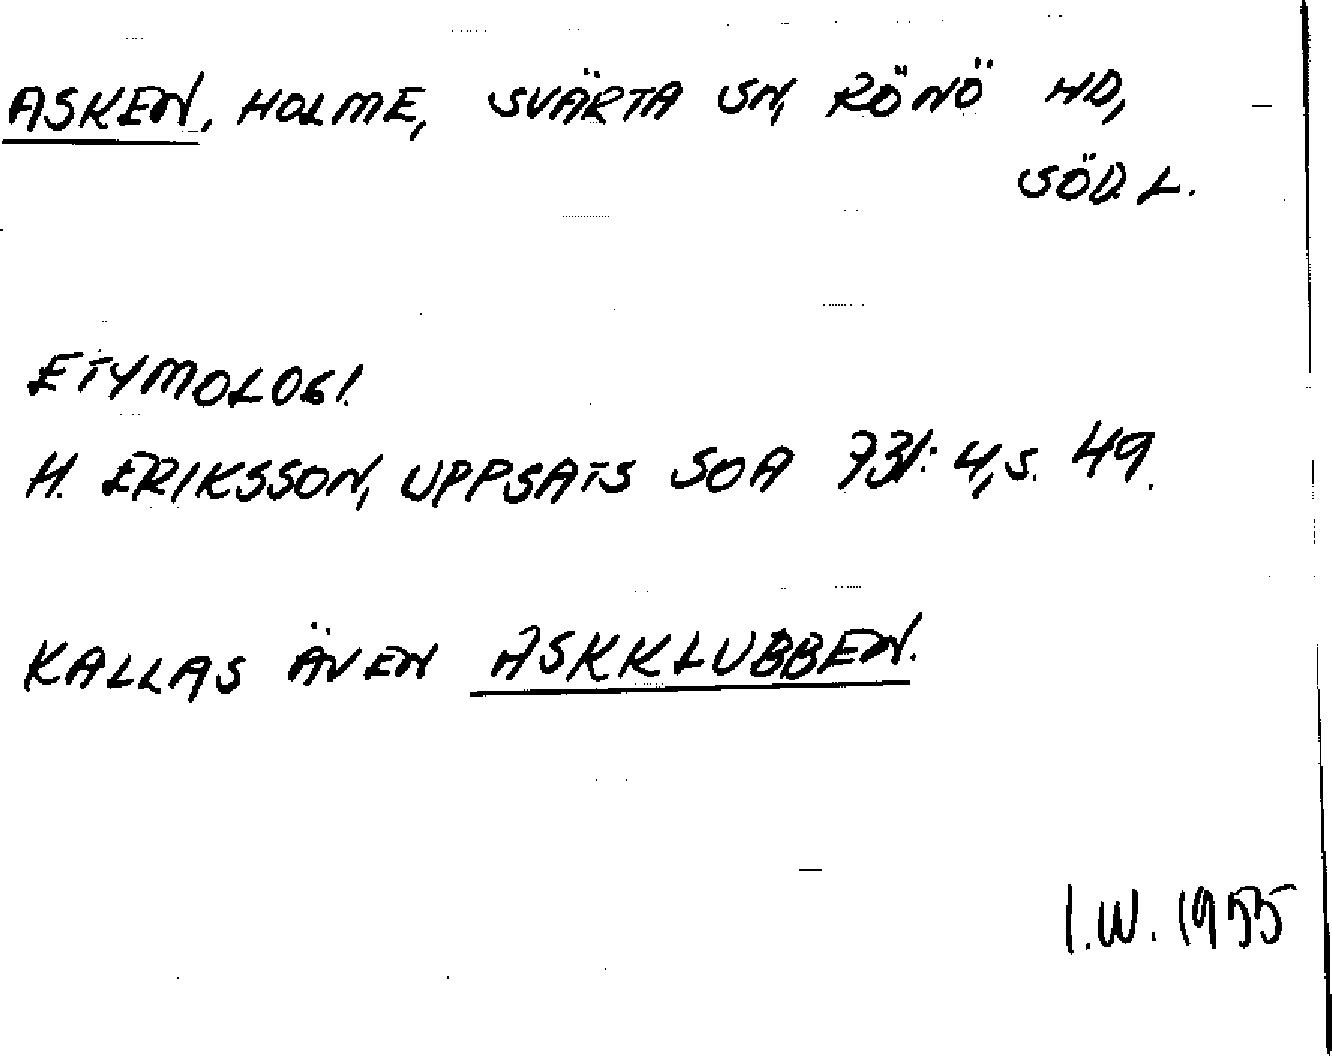 ASKEN, HOLME, SVÄRTA SN, RÖNÖ HD,
SÖD. L.
ETYMOLOGI.
H. ERIKSSON, UPPSATS SOA 731:4, S. 49.
KALLAS ÄVEN ASKKLUBBEN.
I.W. 1955